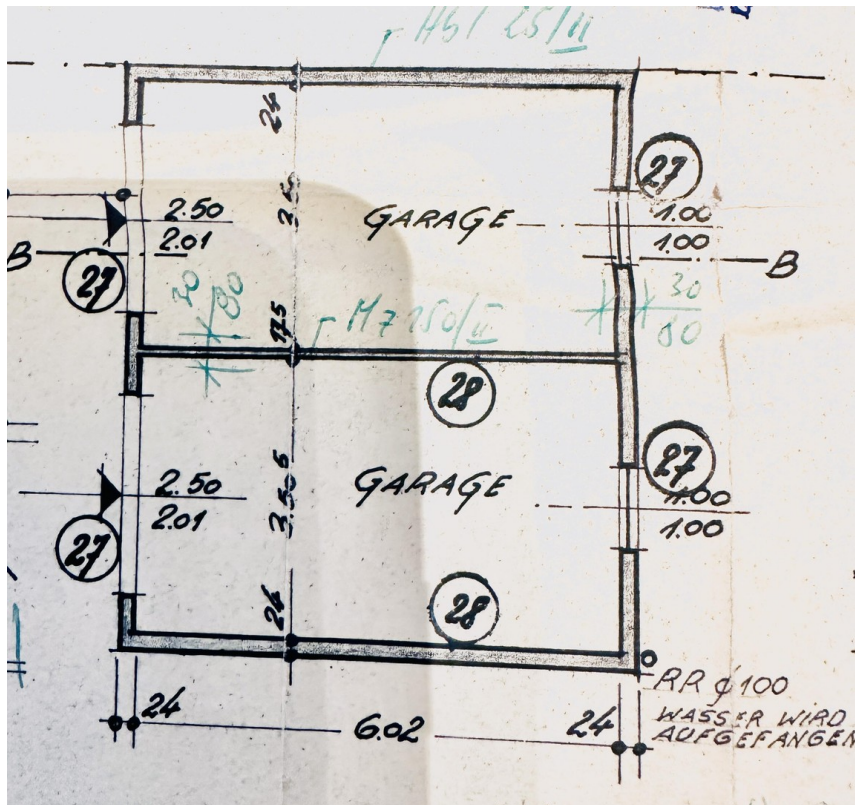 Hbl 25/II
24
27
2.50
2.01
3.50
GARAGE
1.00
1.00
B
B
27
30
80
17.5
Mz 150/II
30
80
28
27
2.50
2.01
3.50 5
GARAGE
1.00
1.00
27
24
28
24
6.02
24
RR ϕ 100
WASSER WIRD
AUFGEFANGEN